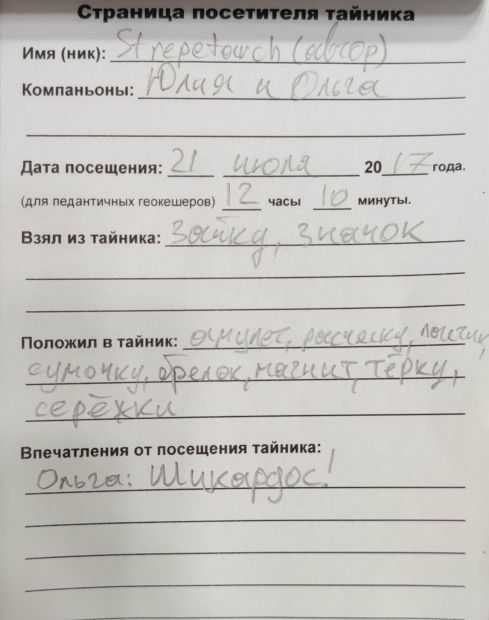 Страница посетителя тайника
Имя (ник): Strepetarch (автор)
Компаньоны: Юлия и Ольга
Дата посещения: 21 июля 2017 года.
(для педантичных геокешеров) 12 часы 10 минуты.
Взял из тайника: Зайку, значок
Положил в тайник: амулет, расческу,
сумочку, брелок, магнит, тёрку,
серёжки
Впечатления от посещения тайника:
Ольга: Шикардос!